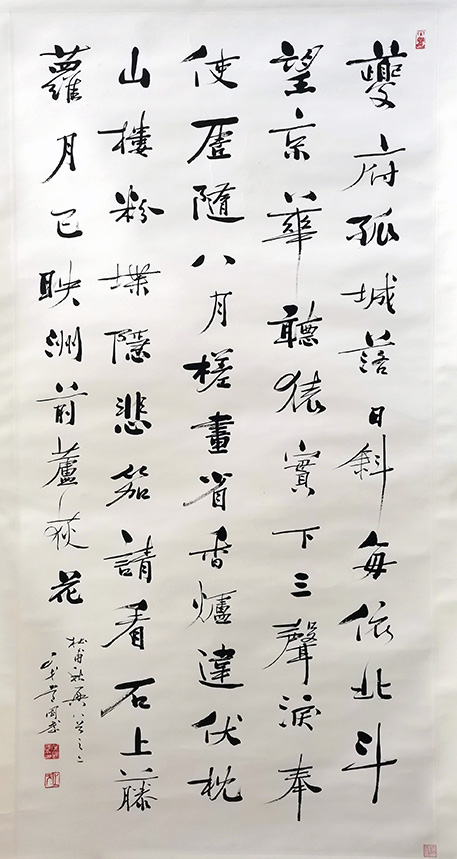 夔府孤城落日斜每依北斗
望京華聽猿實下三聲淚奉
使虛隨八月槎畫省香爐違伏枕
山樓粉堞隱悲笳請看石上藤
蘿月已映洲前蘆荻花
杜甫秋興八首之二